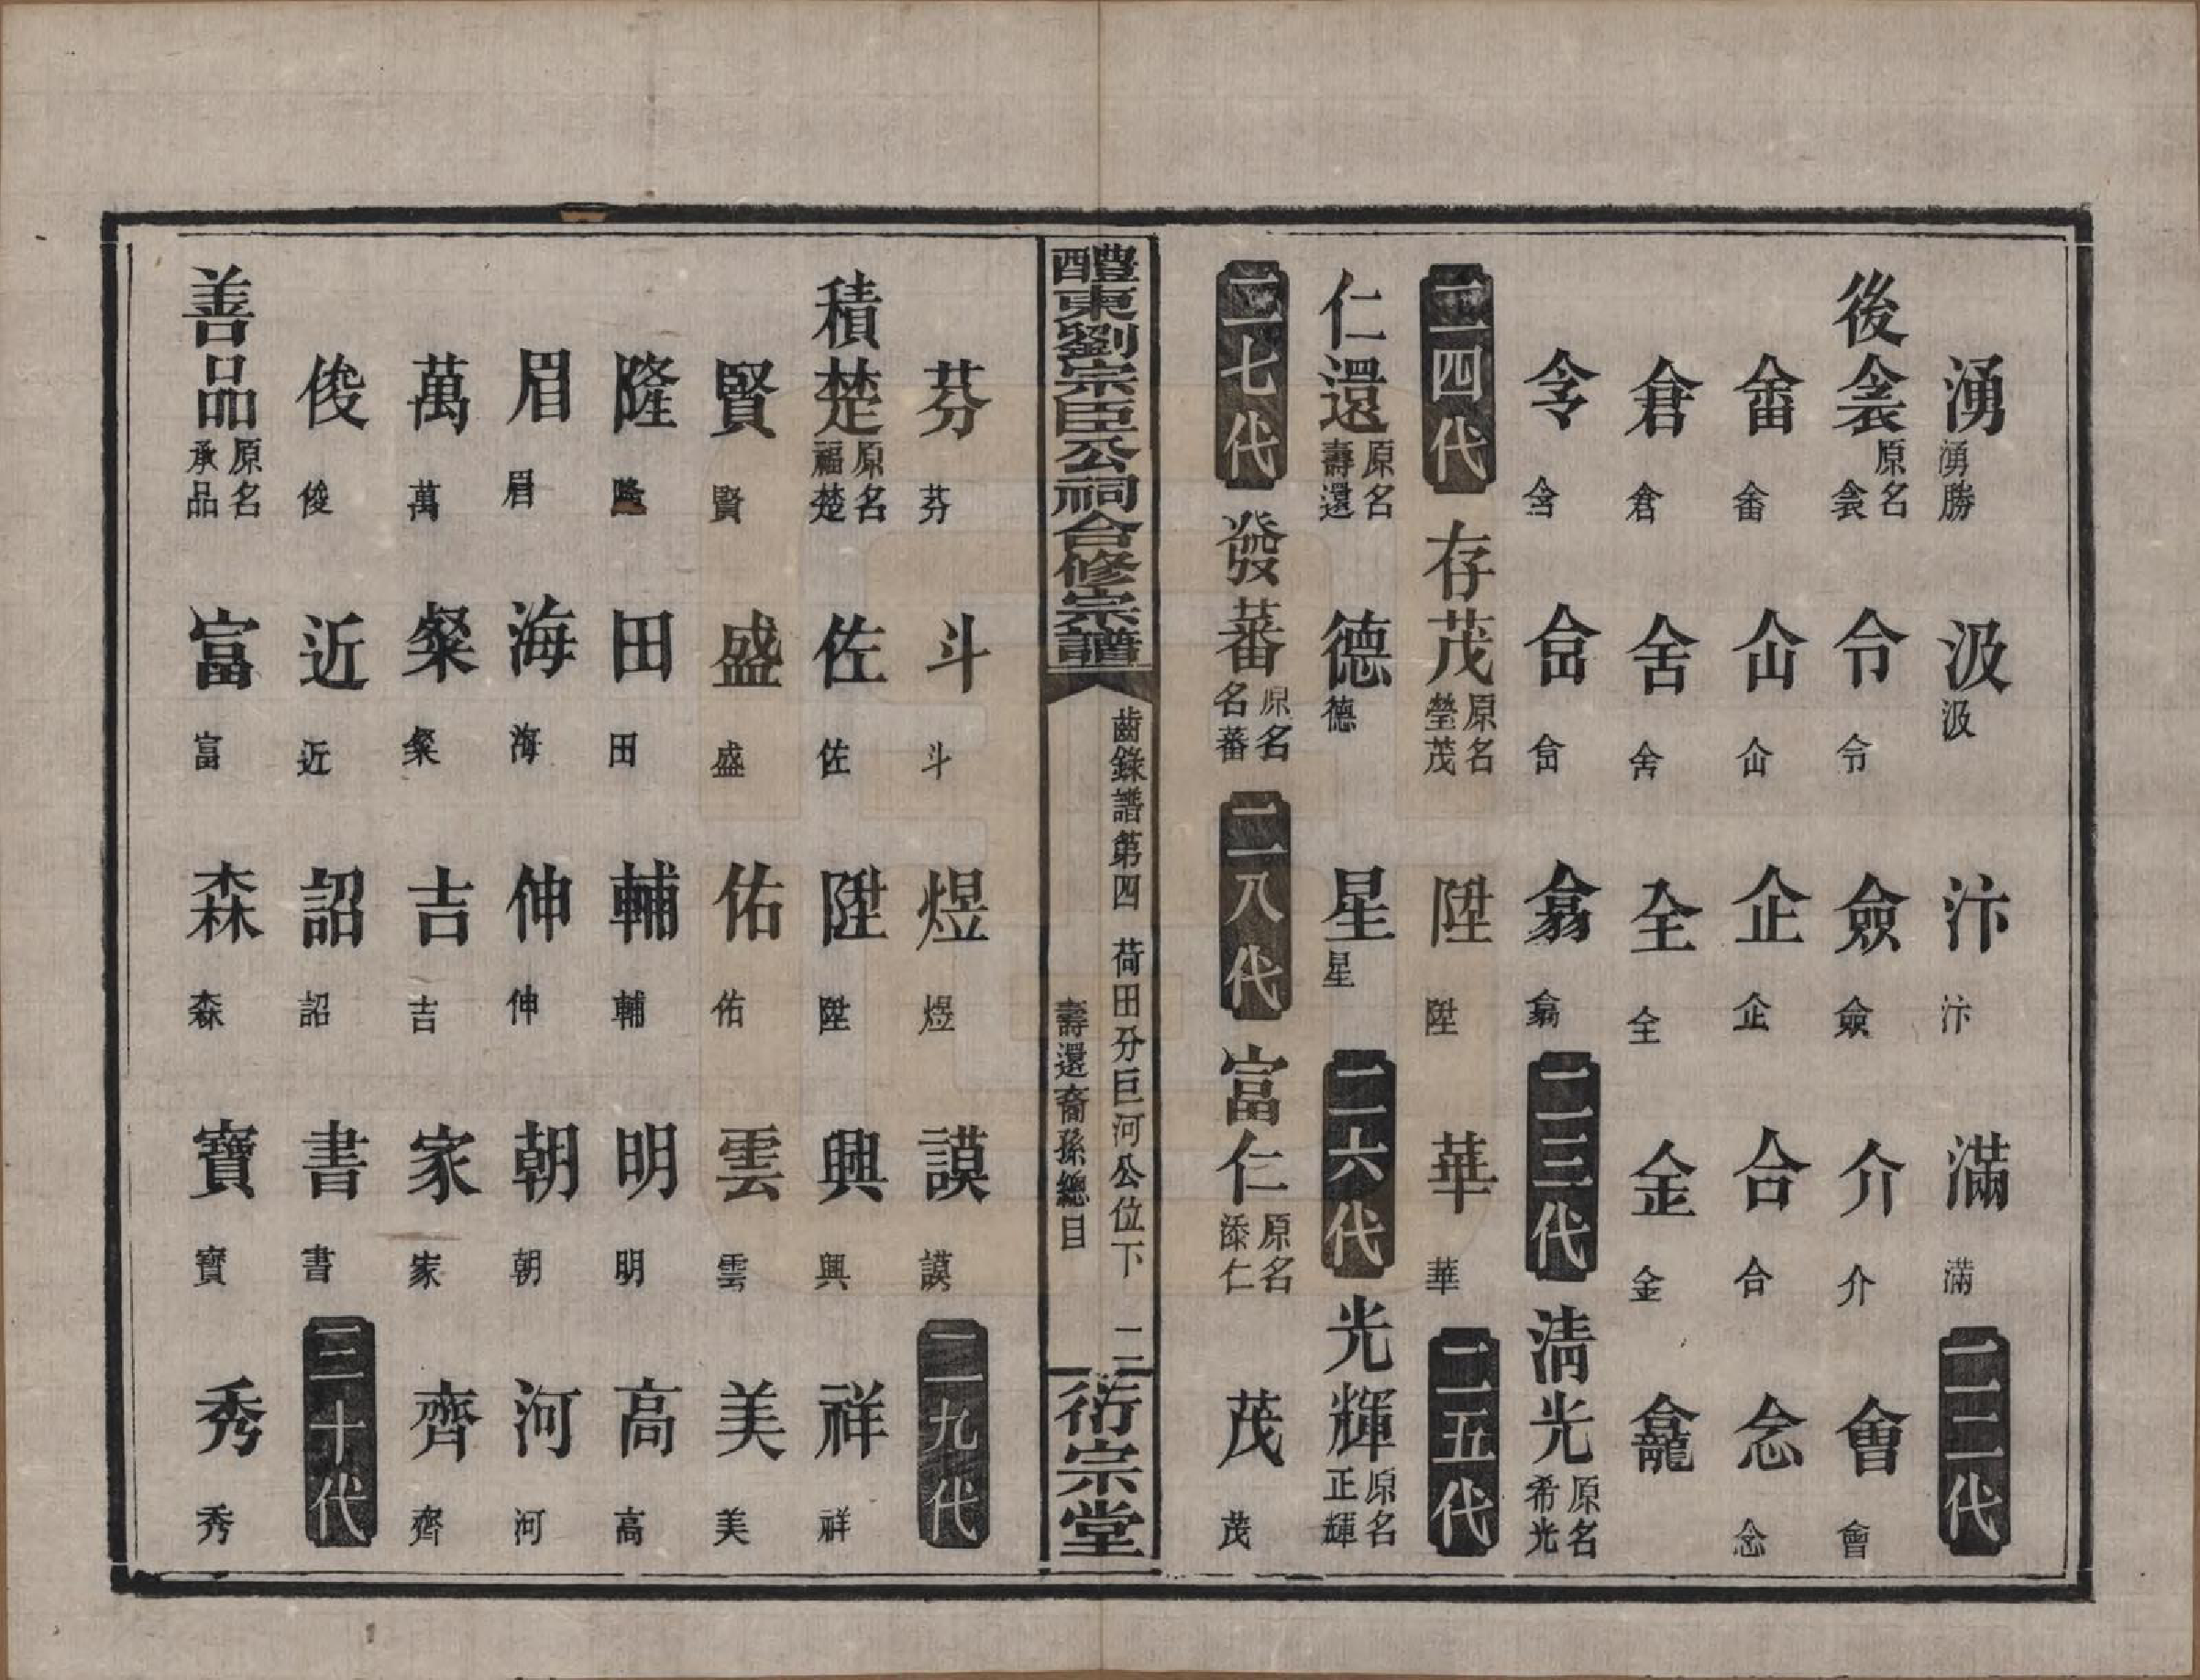 湧 湧勝 汲 汲 汴 汴 滿 滿 二二代
後衾 原名衾 令 令 僉 僉 介 介 會 會
畲 畲 仚 仚 企 企 合 合 念 念
倉 倉 舍 舍 全 全 金 金 龕
含 含 侴 侴 翕 翕 二三代 清光 原名希光
二四代 存茂 原名瑩茂 陞 陞 華 華 二五代
仁還 原名壽還 德 德 星 星 二六代 光輝 原名正輝
二七代 發蕃 原名名蕃 二八代 富仁 原名添仁 茂 茂
醴東劉宗臣公祠合修宗譜
齒錄譜第四 荷田分巨河公位下
壽還裔孫總目
二
衍宗堂
芬 芬 斗 斗 煜 煜 謨 謨 二九代
積楚 原名福楚 佐 佐 陞 陞 興 興 祥 祥
賢 賢 盛 盛 佑 佑 雲 雲 美 美
隆 隆 田 田 輔 輔 明 明 高 高
眉 眉 海 海 伸 伸 朝 朝 河 河
萬 萬 粲 粲 吉 吉 家 家 齊 齊
俊 俊 近 近 詔 詔 書 書 三十代
善品 原名承品 富 富 森 森 寶 寶 秀 秀